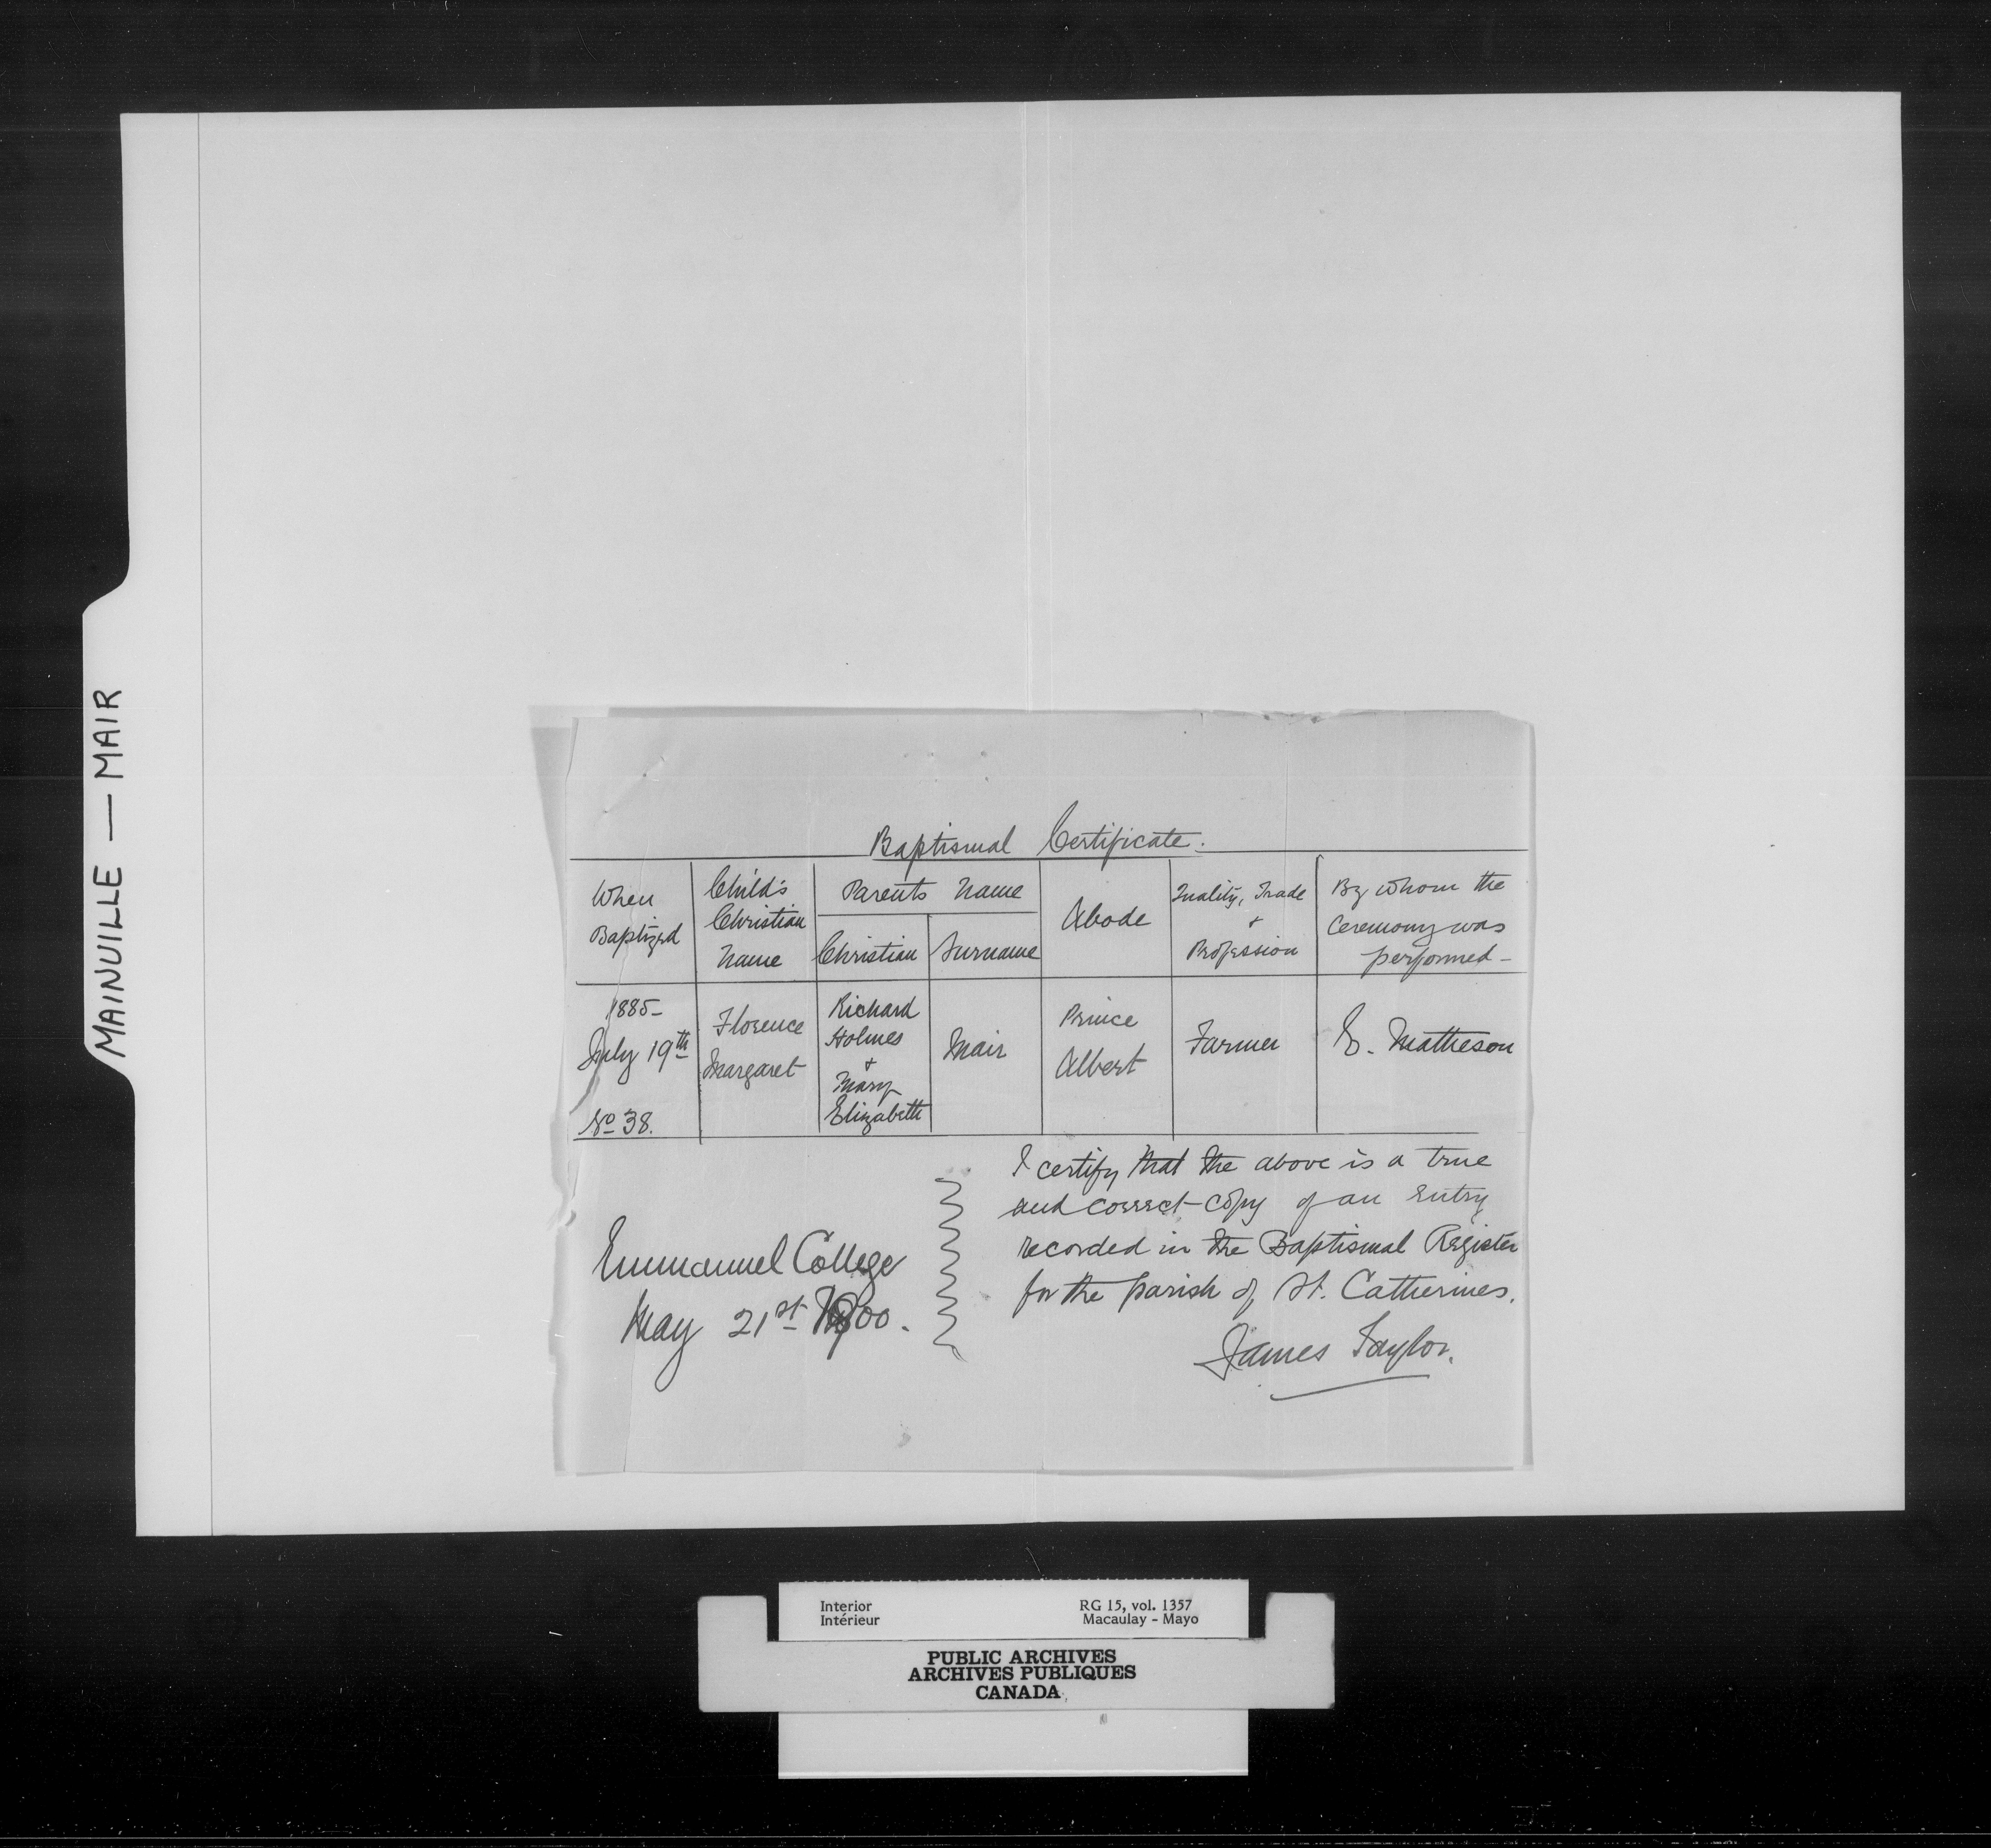 MAINVILLE — MAIR
Baptismal Certificate.
When Baptized
Child's Christian Name
Parents Name
Christian
Surname
Abode
Quality, Trade + Profession
By whom the Ceremony was performed -
1885-
July 19th
No 38.
Florence
Margaret
Richard
Holmes
+
Mary
Elizabeth
Mair
Prince
Albert
Farmer
E. Matheson
I certify that the above is a true
and correct copy of an entry
recorded in the Baptismal Register
for the parish of St. Catherines.
James Taylor.
Emmanuel College
May 21st 1900.
Interior
Intérieur
RG 15, vol. 1357
Macaulay - Mayo
PUBLIC ARCHIVES
ARCHIVES PUBLIQUES
CANADA